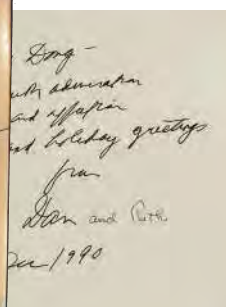 Doug -
with admiration
and affection
and holiday greetings
from
Dan and Ruth
Dec 1990